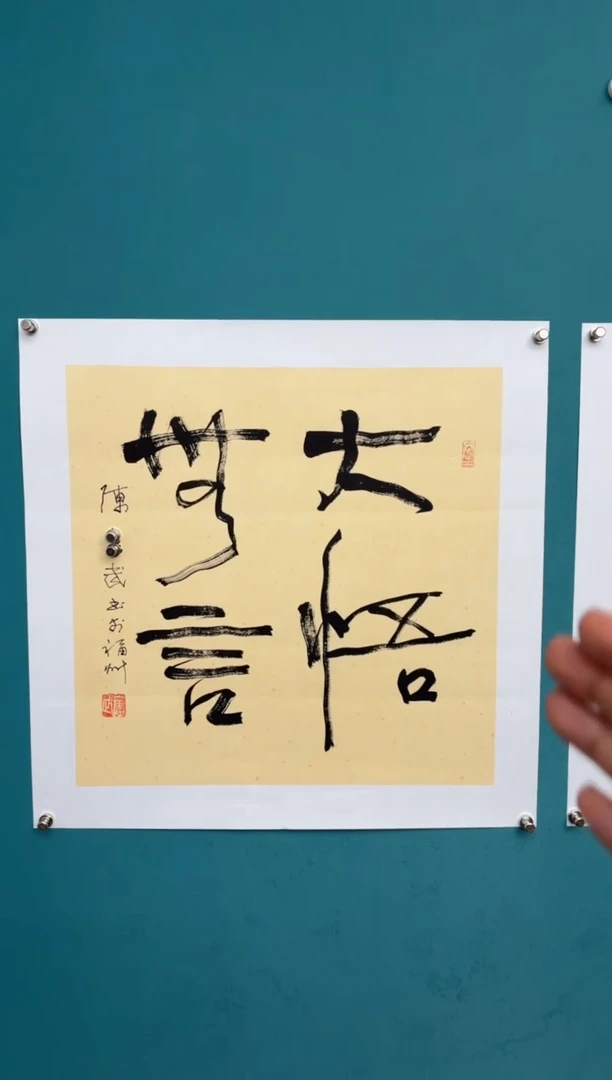 大悟
無言
陳武书於福州